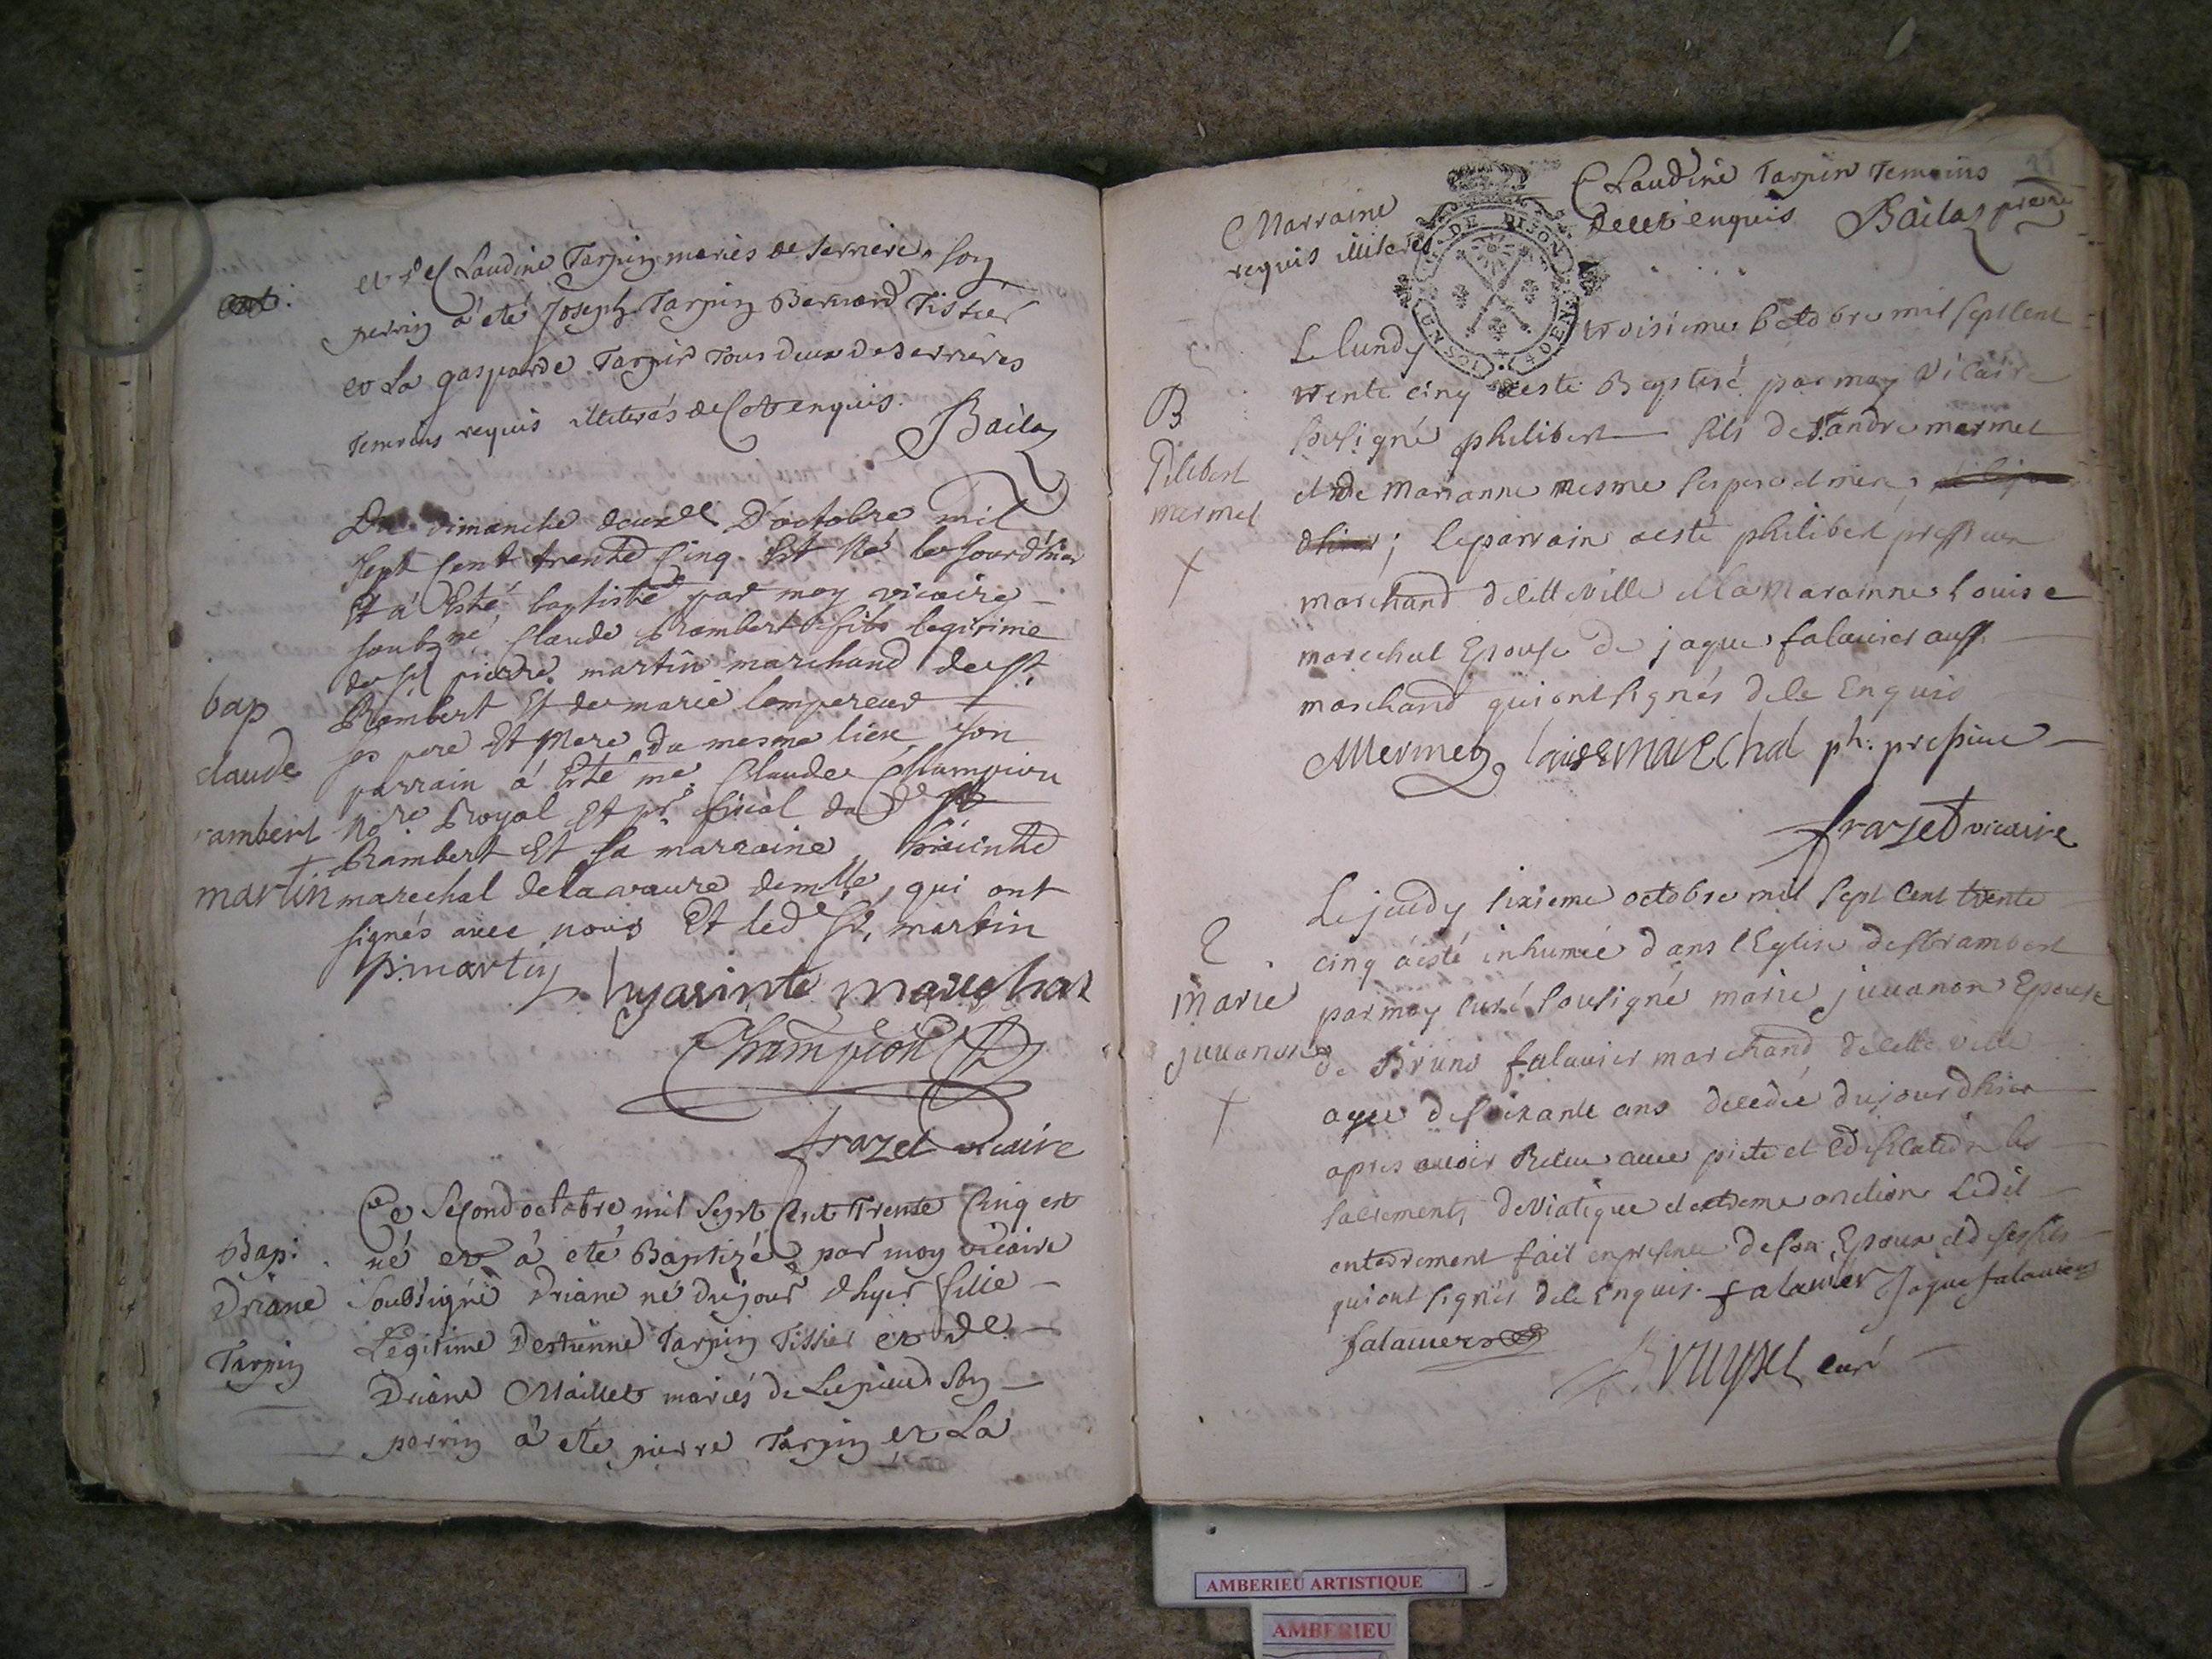 et de Claudine Tarpin mariés de Serrieres son
perrin a eté Joseph Tarpin Bernard Tissier
et La gasparde Tarpin Tous deux de Serrieres
Temoins requis illiterés de Cet enquis.
Bailaz
Du dimanche deuxe D'octobre mil
Sept Cent trente Cinq Est Né le Jourd'hier
Et a Esté baptisté par moy vicaire
soubzné Claude Rambert fils legitime
de sr pierre martin marchand de st
Rambert Et de marie lempereur
ses pere Et Mere du mesme lieu son
parrain a Esté me Claude Champion
Nore Royal Et pr fiscal du d st
Rambert Et sa marraine hiacinthe
marechal delavaure demlle, qui ont
signés avec nous Et led sr, martin
bap
claude
rambert
martin
P. martin hyasinte marechal
Champion
frazet vicaire
Ce Second octobre mil Sept Cent Trente Cinq est
né et a eté Baptizé par moy vicaire
Soubsigné Driane né du jour d'hyer fille
Legitime D'estienne Tarpin Tissier et de
Driane Maillet mariés de Lupieu Son
perrin a eté pierre Tarpin et La
Bap:
Driane
Tarpin
Marraine Claudine Tarpin Temoins
requis illiterés de cet enquis Bailaz pretre
GN DE DIJON
Le lundy troisieme octobre mil sept cent
trente cinq a esté Baptisé par moy vicaire
sousigné philibert fils de sr andre mermet
et de Marianne mesme ses pere et mere;
; le parrain a esté philibert pressieu
marchand de cette ville et la Marainne Louise
marechal Epouse de jaque falavier aussi
marchand qui ont signés de ce Enquis
B
Pilibert
mermet
Mermet Louise Marechal ph: presieu
frazet vicaire
Le jeudy sixieme octobre mil sept cent trente
cinq a esté inhumée dans l'Eglise de st rambert
par moy curé sousigné marie juvanon Epouse
de Bruno falavier marchand de cette ville
agée de soixante ans decedée du jour d'hier
apres avoir Recue avec pieté et Edification les
sacrements de viatique et extreme onction Ledit
enterrement fait en presence de son Epoux et de ses fils
qui ont signés de ce Enquis. falavier Jaque falavier
falavier
marie
juvanon
Bruyset curé
AMBERIEU ARTISTIQUE
AMBERIEU